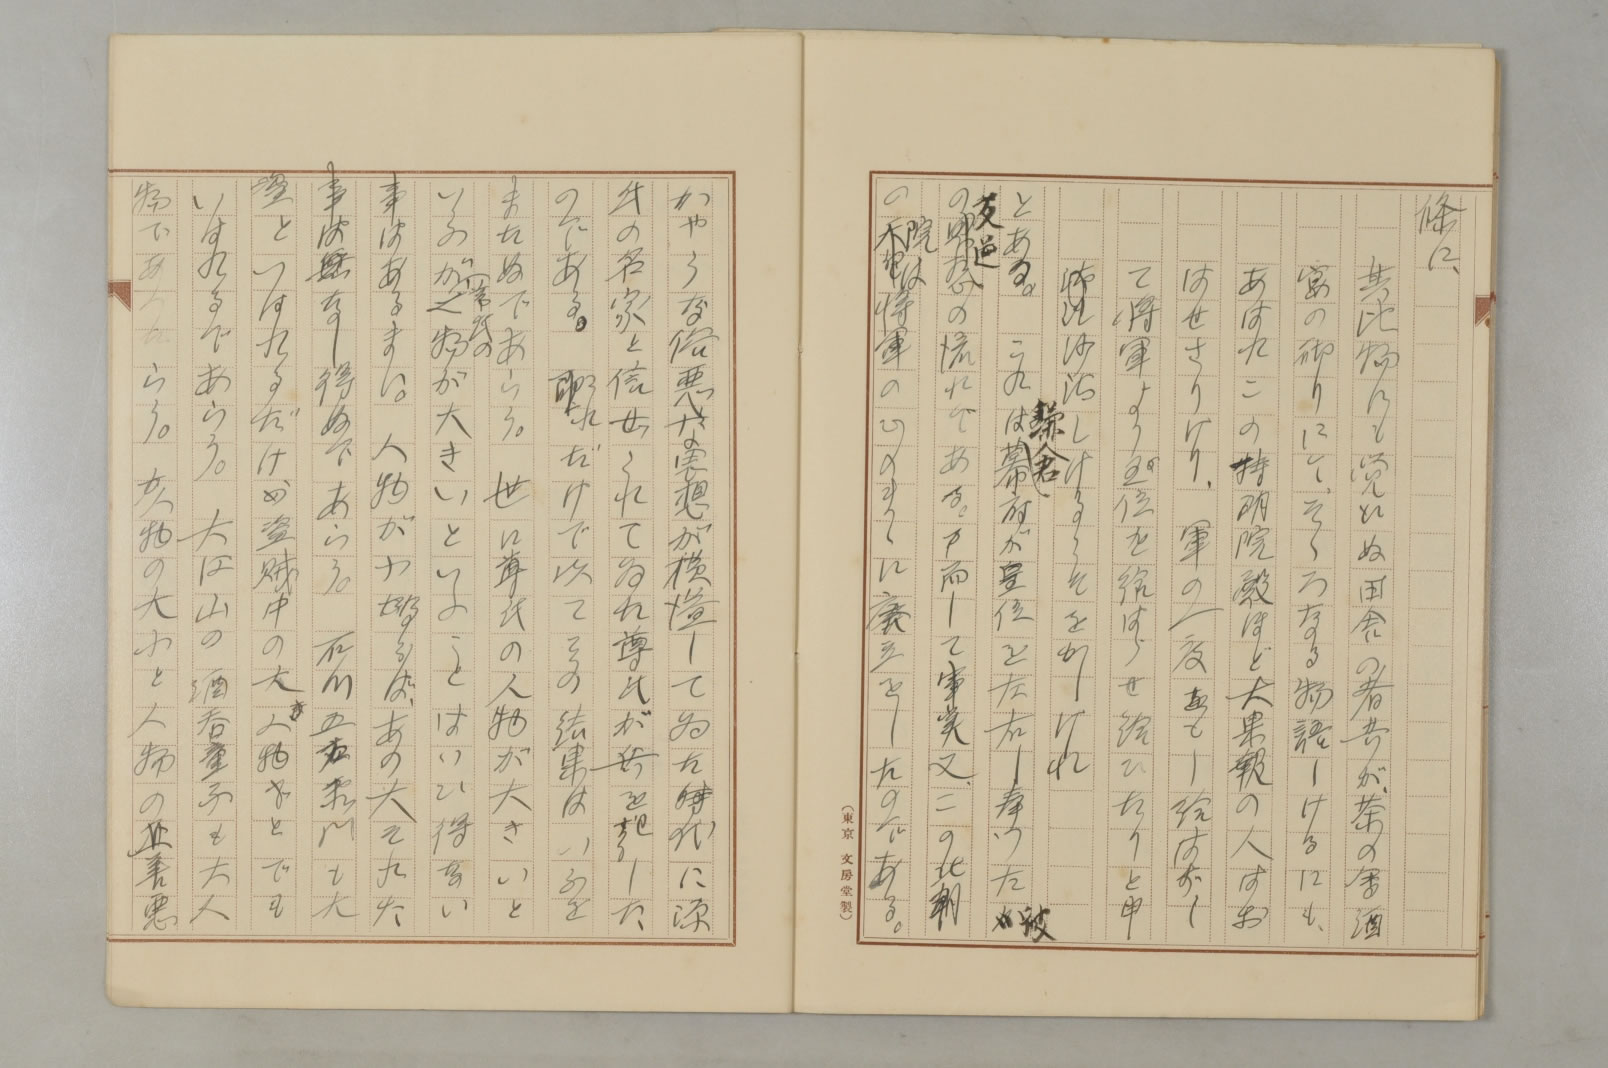 條に、
其比物にも覚えぬ田舎の者共が、茶の会酒
宴の砌りにて、そゞろなる物語しけるにも、
あはれこの持明院殿ほど大果報の人はお
はせざりけり、軍の一度もし給はずし
て将軍より王位を給はらせ給ひたりと申
沙汰しけるこそをかしけれ
とある。これは鎌倉幕府が皇位を左右し奉つた
反逆の悪の流れである。而して事実又、この北朝
の院は将軍のまゝに廃立をしたのである。
(東京 文房堂製)
かやうな俗悪な思想が横溢してゐた時代に源
氏の名家と信ぜられてゐた尊氏が兵を起した
のである。それだけで以てその結果はいふを
またぬであらう。世に尊氏の人物が大きいと
いふが、人物が大きいといふことはいひ得ない
事はあるまい。人物が小喝るば、あの大それた
事は為し得ぬであらう。石川五右衛門も大
盗といはれるだけの盗賊中の大人物などでも
いはれるであらう。大江山の酒呑童子も大人
物であつたらう。人物の大小と人物の正善悪